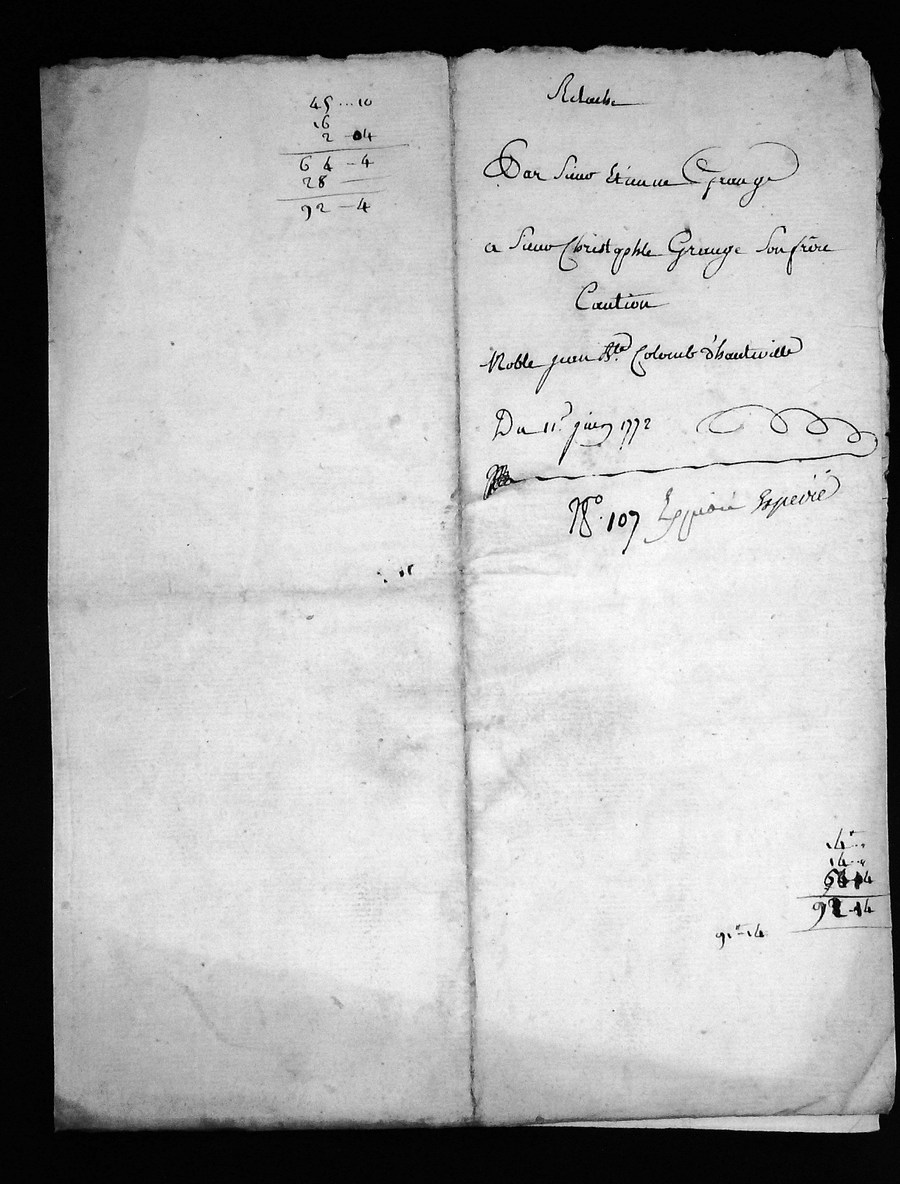 45 ... 10
16
2 - 04
64 - 4
28 —
92 - 4
Relache
Par Sieur Etienne Grange
a Sieur Christophle Grange Son frère
Caution
Noble jean Bte. Colomb d'hauteville
Du 11e. juin 1772
No. 107 Expédié Expédié
14 ..
14 ..
64 14
92 - 14
91 - 14